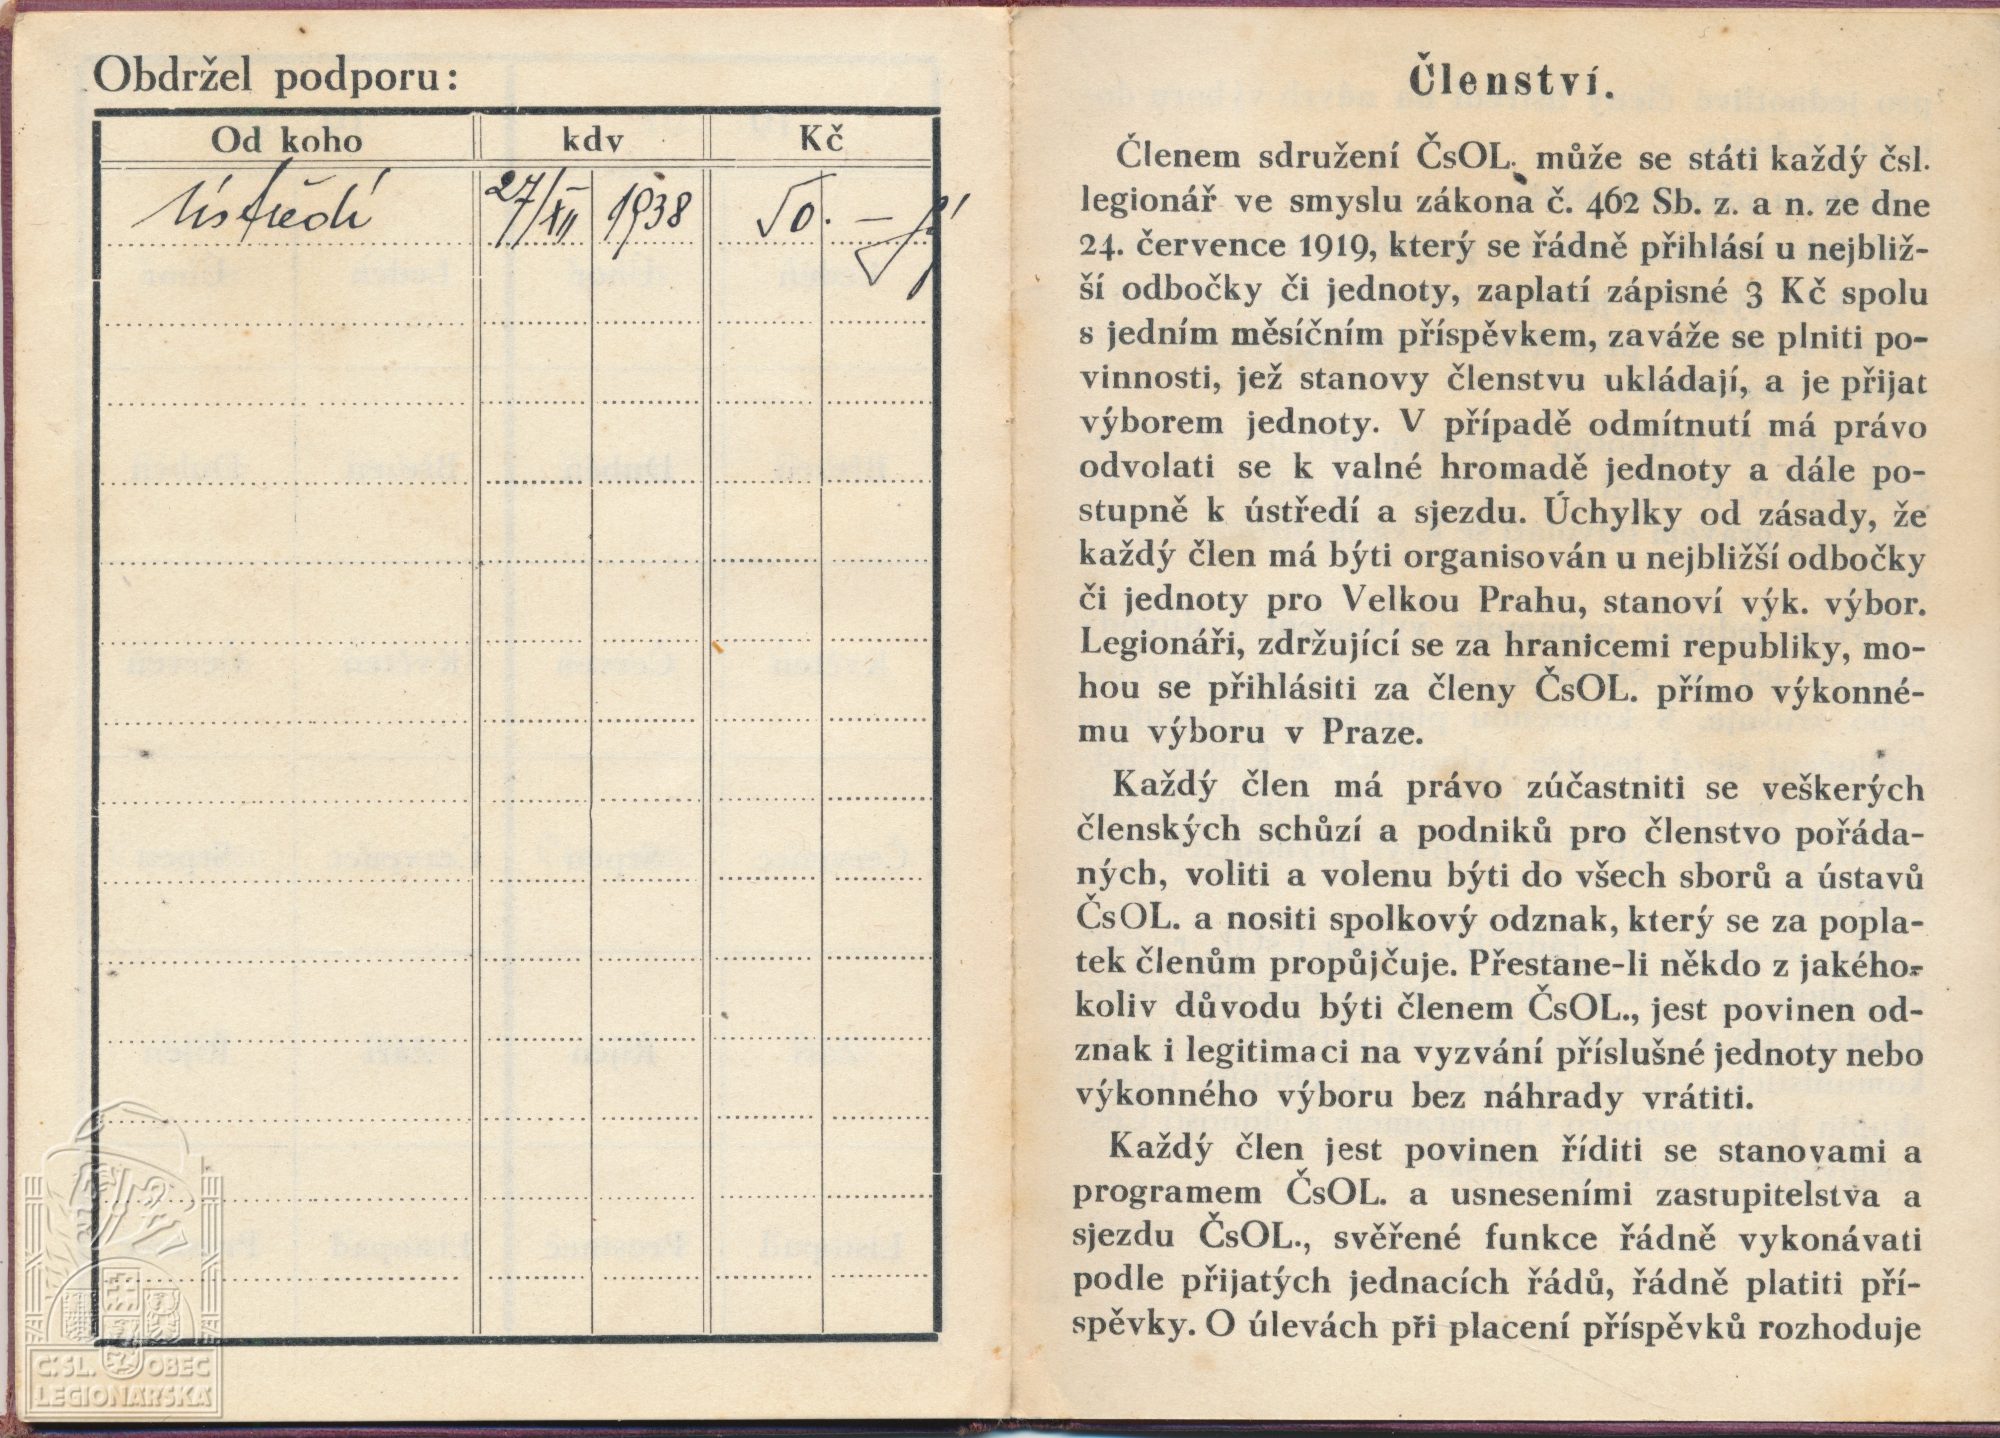 Obdržel podporu:
Od koho kdy Kč
Ústředí 27/XII 1938 50.—
Členství.
Členem sdružení ČsOL. může se státi každý čsl.
legionář ve smyslu zákona č. 462 Sb. z. a n. ze dne
24. července 1919, který se řádně přihlásí u nejbliž-
ší odbočky či jednoty, zaplatí zápisné 3 Kč spolu
s jedním měsíčním příspěvkem, zaváže se plniti po-
vinnosti, jež stanovy členstvu ukládají, a je přijat
výborem jednoty. V případě odmítnutí má právo
odvolati se k valné hromadě jednoty a dále po-
stupně k ústředí a sjezdu. Úchylky od zásady, že
každý člen má býti organisován u nejbližší odbočky
či jednoty pro Velkou Prahu, stanoví výk. výbor.
Legionáři, zdržující se za hranicemi republiky, mo-
hou se přihlásiti za členy ČsOL. přímo výkonné-
mu výboru v Praze.
Každý člen má právo zúčastniti se veškerých
členských schůzí a podniků pro členstvo pořáda-
ných, voliti a volenu býti do všech sborů a ústavů
ČsOL. a nositi spolkový odznak, který se za popla-
tek členům propůjčuje. Přestane-li někdo z jakého-
koliv důvodu býti členem ČsOL., jest povinen od-
znak i legitimaci na vyzvání příslušné jednoty nebo
výkonného výboru bez náhrady vrátiti.
Každý člen jest povinen říditi se stanovami a
programem ČsOL. a usneseními zastupitelstva a
sjezdu ČsOL., svěřené funkce řádně vykonávati
podle přijatých jednacích řádů, řádně platiti pří-
spěvky. O úlevách při placení příspěvků rozhoduje
Č. SL. OBEC
LEGIONÁŘSKÁ